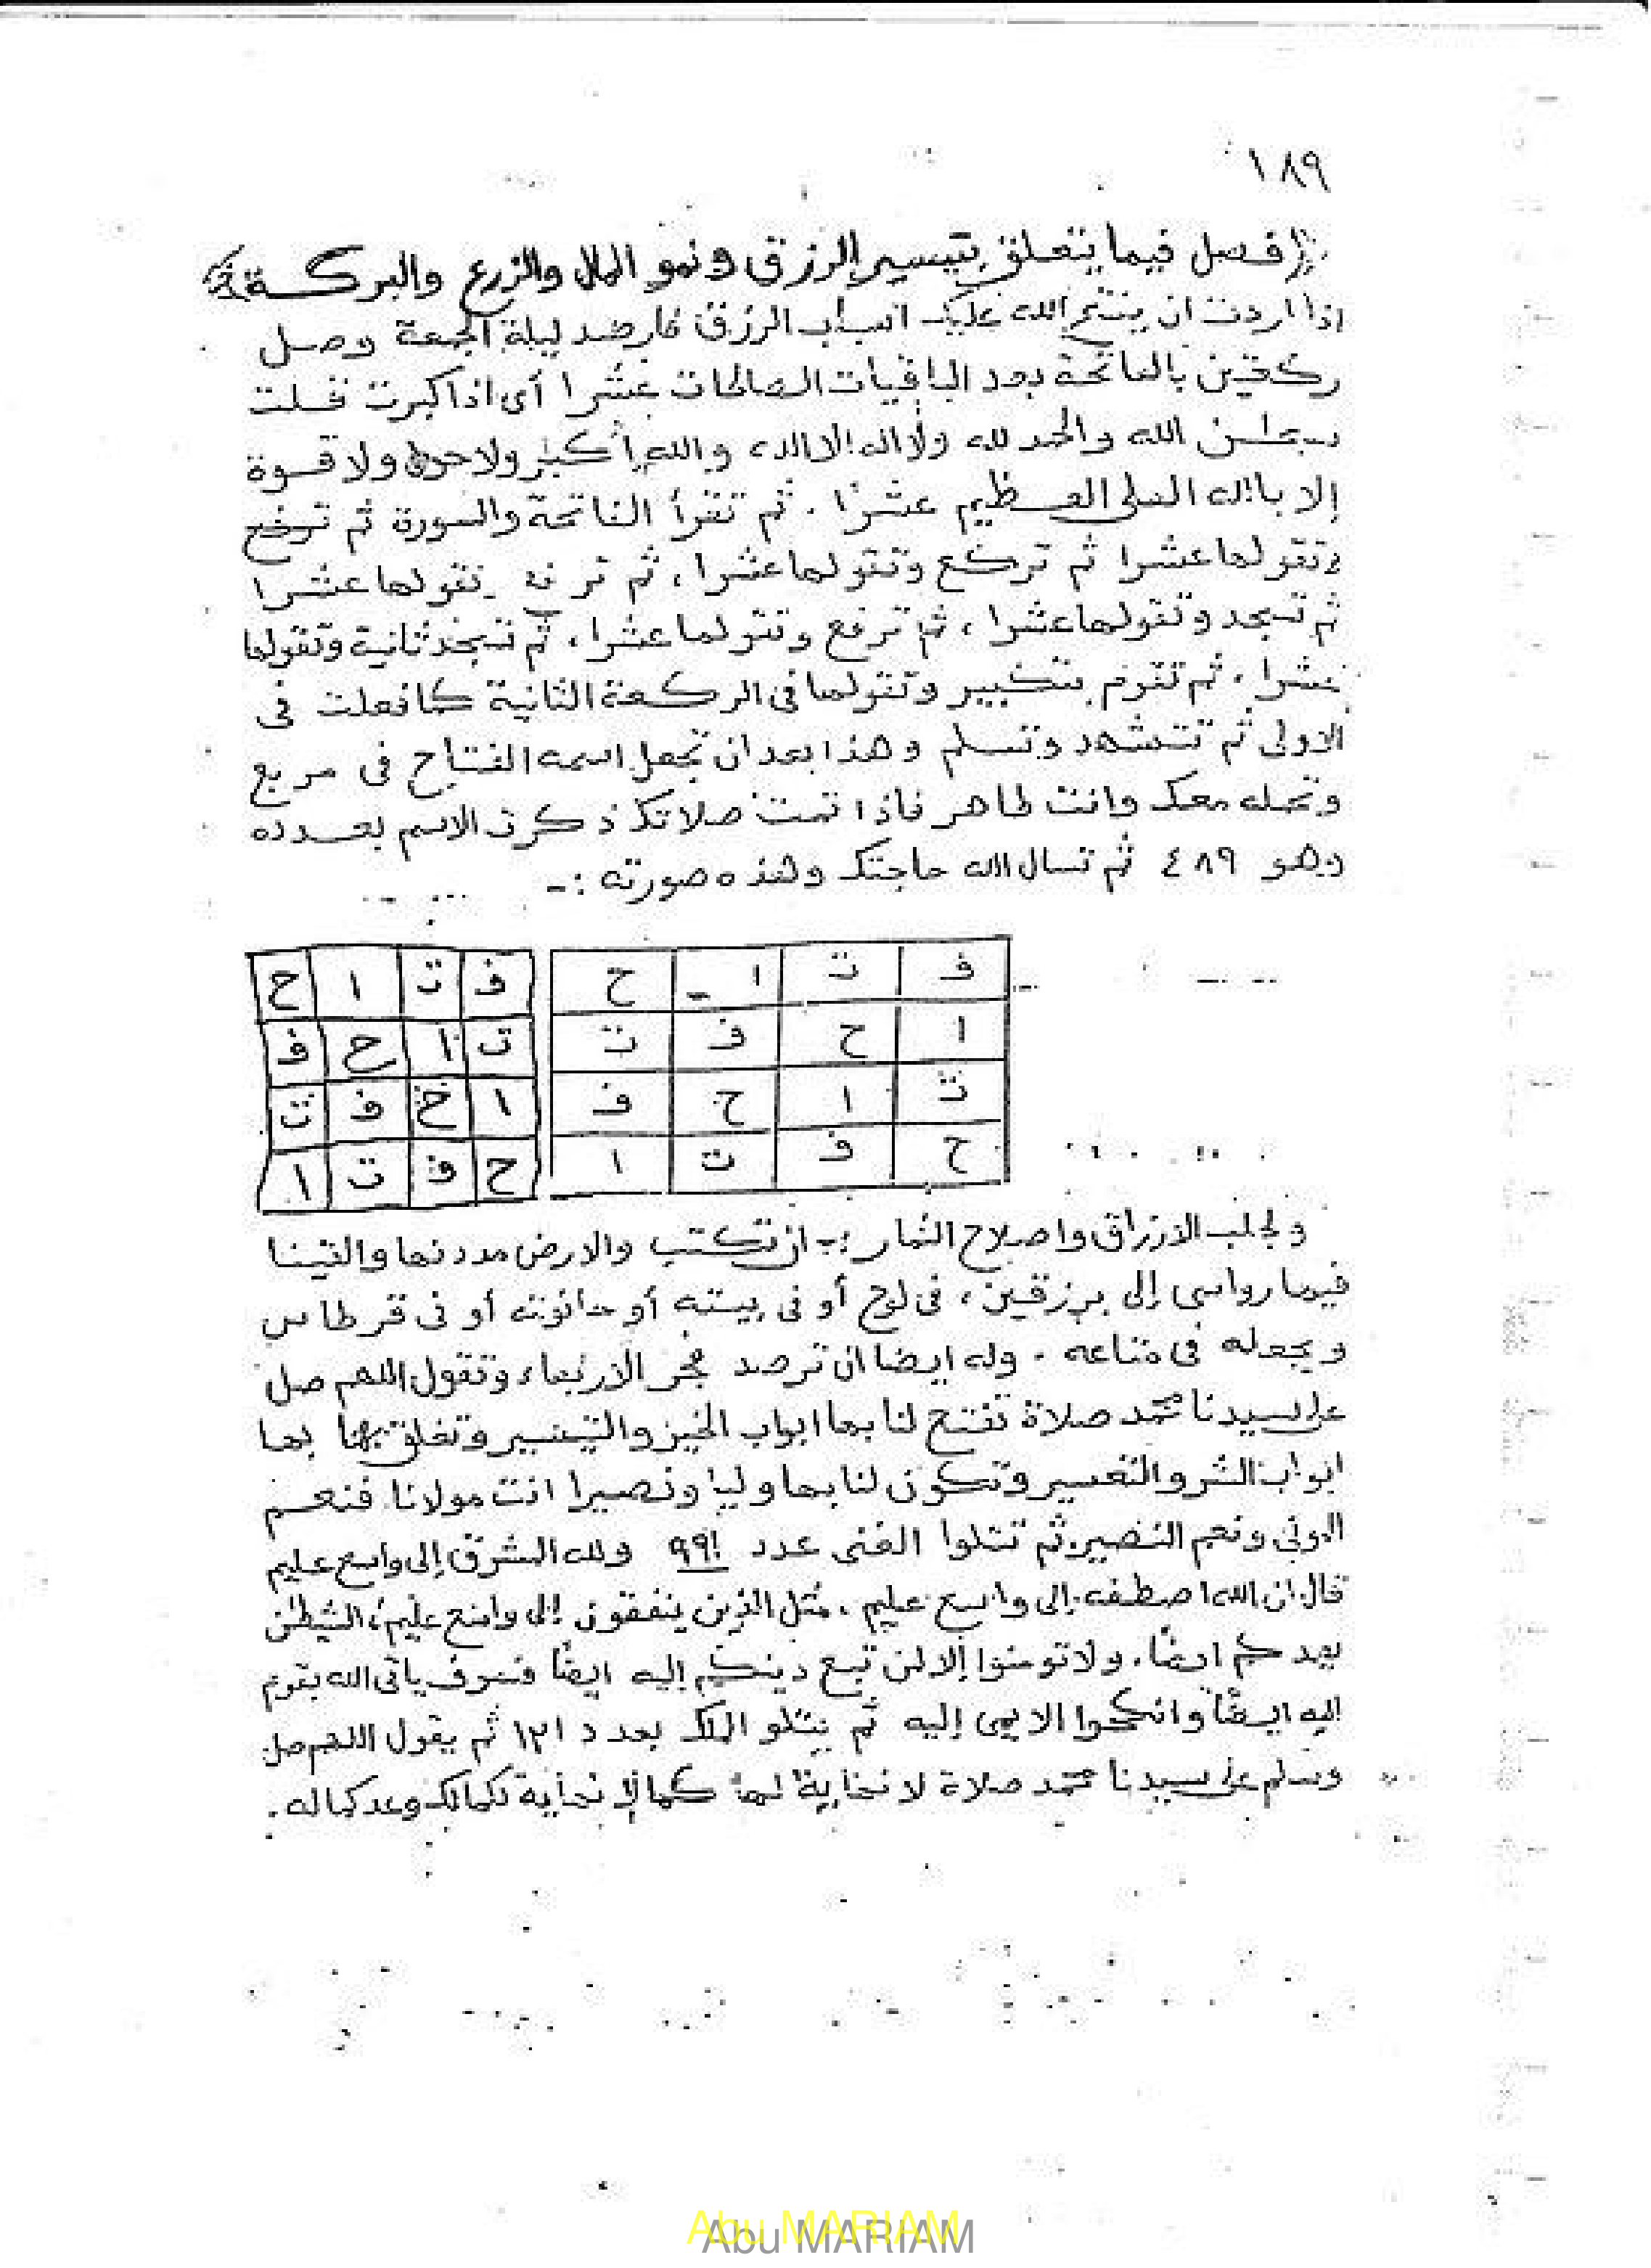 ١٨٩
﴿ فصل فيما يتعلق بتيسير الرزق ونمو المال والزرع والبركة ﴾
اذا اردت ان يفتح الله عليك اسباب الرزق فارصد ليلة الجمعة وصل
ركعتين بالفاتحة بعد الباقيات الصالحات عشرا أى اذا كبرت فقلت
سبحان الله والحمد لله ولا اله الا الله والله أكبر ولا حول ولا قوة
إلا بالله العلى العظيم عشرا . ثم تقرأ الفاتحة والسورة ثم
وتقولها عشرا ثم تركع وتقولها عشرا ، ثم تقولها عشرا
ثم تسجد وتقولها عشرا ، ثم ترفع وتقولها عشرا ، ثم تسجد ثانية وتقولها
عشرا ، ثم تقوم بتكبير وتقولها فى الركعة الثانية كما فعلت فى
الاولى ثم تتشهد وتسلم وهذا بعد ان تجعل اسمه الفتاح فى مربع
وتحمله معك وانت طاهر فاذا تمت صلاتك ذكرت الاسم بعدده
وهو ٤٨٩ ثم تسال الله حاجتك وهذه صورته :-
ف ت ا ح ف ت ا ح
ا ح ف ت ت ا ح ف
ت ا ح ف ا ح ف ت
ح ف ت ا ح ف ت ا
ولجلب الارزاق واصلاح الثمار :- ان تكتب والارض مددنها والقينا
فيها رواسى إلى برزقين ، فى لوح أو فى بيته أو حانوته أو فى قرطاس
ويجعله فى متاعه . وله ايضا ان ترصد فجر الاربعاء وتقول اللهم صل
على سيدنا محمد صلاة تفتح لنا بها ابواب الخير والتيسير وتغلق بها
ابواب الشر والتعسير وتكون لنا بها وليا ونصيرا انت مولانا فنعم
المولى ونعم النصير ثم تتلوا الغنى عدد ٩٩١ ولله المشرق إلى واسع عليم
قال ان الله اصطفه إلى واسع عليم ، مثل الذين ينفقون إلى واسع عليم ، الشيطن
يعدكم ايضا ، ولا تومنوا إلا لمن تبع دينكم إليه ايضا فسوف ياتى الله بقوم
اليه ايضا وانكحوا الايمى إليه ثم يتلو الملك بعدد ١٢١ ثم يقول اللهم صل
وسلم على سيدنا محمد صلاة لا نهاية لها كما لا نهاية لكمالك وعد كماله .
Abu MARIAM